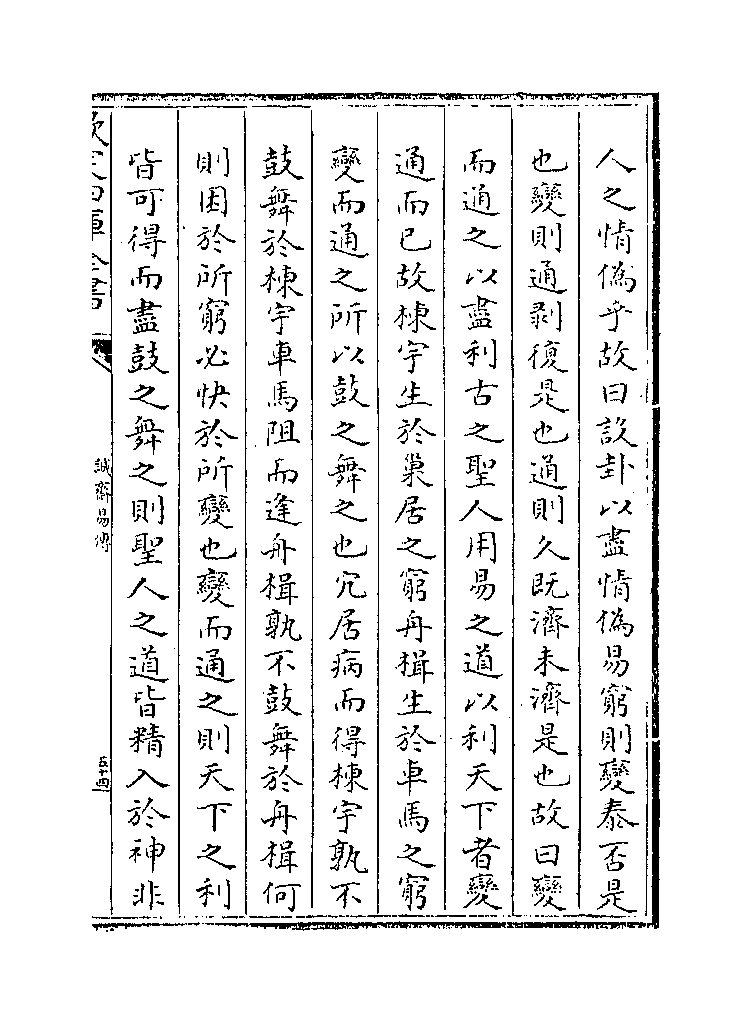 人之情偽乎故曰設卦以盡情偽易窮則變泰否是
也變則通剥復是也通則久既濟未濟是也故曰變
而通之以盡利古之聖人用易之道以利天下者變
通而已故棟宇生於巢居之窮舟楫生於車馬之窮
變而通之所以鼓之舞之也穴居病而得棟宇孰不
鼓舞於棟宇車馬阻而逢舟楫孰不鼓舞於舟楫何
則困於所窮必快於所變也變而通之則天下之利
皆可得而盡鼓之舞之則聖人之道皆精入於神非
欽定四庫全書
誠齋易傳
五十四